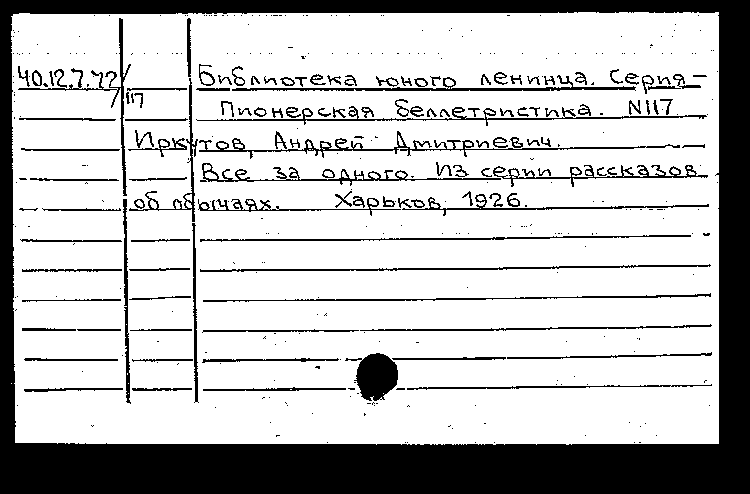 40.12.7.72/117 Библиотека юного ленинца. Серия-
Пионерская беллетристика. N117
Иркутов, Андрей Дмитриевич.
Все за одного. Из серии рассказов
об обычаях. Харьков, 1926.